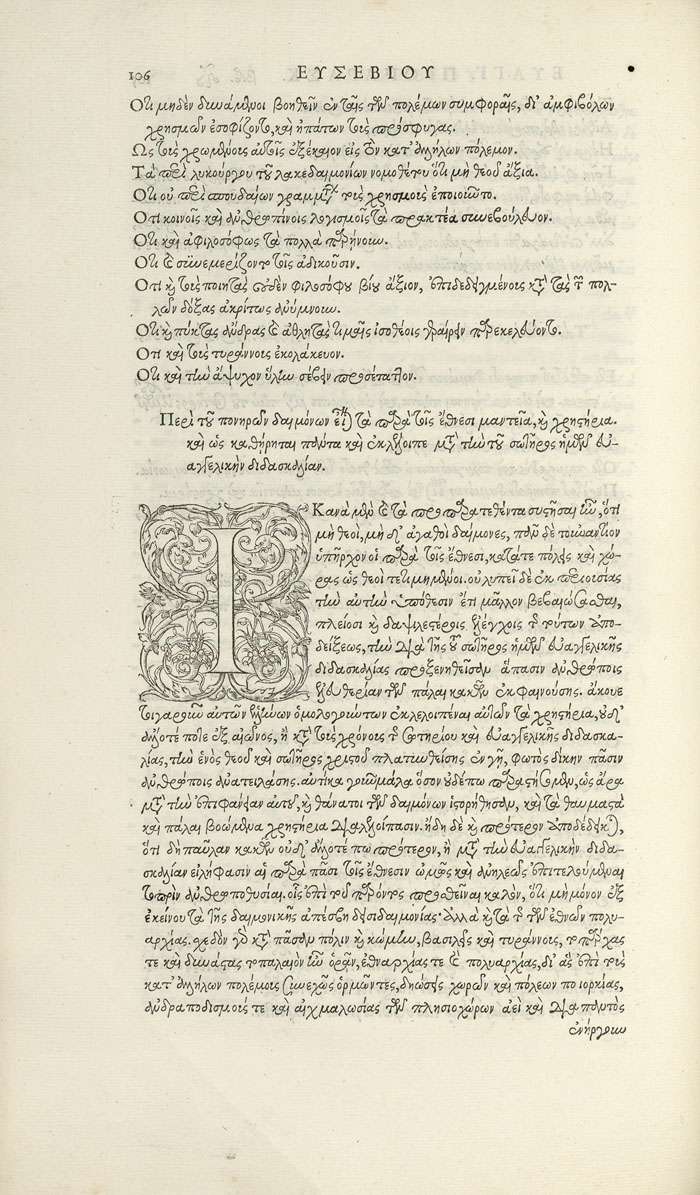 106 ΕΥΣΕΒΙΟΥ
Ὅτι μηδὲν δυνάμενοι βοηθεῖν ἐν ταῖς τῶν πολέμων συμφοραῖς, δι' ἀμφιβόλων
χρησμῶν ἐσοφίζοντο, καὶ ἠπάτων τοὺς πρόσφυγας.
Ὡς τοὺς χρωμένους αὐτοῖς ἐξέκαιον εἰς τὸν κατ' ἀλλήλων πόλεμον.
Τὰ περὶ λυκούργου τοῦ λακεδαιμονίων νομοθέτου ὅτι μὴ θεοῦ ἄξια.
Ὅτι οὐ περὶ σπουδαίων πραγμάτων τοὺς χρησμοὺς ἐποιοῦντο.
Ὅτι κοινοῖς καὶ ἀνθρωπίνοις λογισμοῖς τὰ πρακτέα συνεβούλευον.
Ὅτι καὶ ἀφιλοσόφως τὰ πολλὰ παρῄνουν.
Ὅτι καὶ συνεμερίζοντο τοῖς ἀδικοῦσιν.
Ὅτι καὶ τοὺς ποιητὰς οὐδὲν φιλοσόφου βίου ἄξιον, ἐπιδεδειγμένους κατὰ τὰς τῶν πολ-
λῶν δόξας ἀκρίτως ἀνύμνουν.
Ὅτι καὶ πύκτας ἄνδρας καὶ ἀθλητὰς τιμαῖς ἰσοθέοις γεραίρειν παρεκελεύοντο.
Ὅτι καὶ τοὺς τυράννους ἐκολάκευον.
Ὅτι καὶ τὴν ἄψυχον ὕλην σέβειν προσέταττον.
Περὶ τοῦ πονηρῶν δαιμόνων εἶναι τὰ παρὰ τοῖς ἔθνεσι μαντεῖα, καὶ χρηστήρια.
καὶ ὡς καθῄρηται πάντα καὶ ἐκλέλοιπε μετὰ τὴν τοῦ σωτῆρος ἡμῶν εὐ-
αγγελικὴν διδασκαλίαν.
ΙΚανὰ μὲν καὶ τὰ προπαρατεθέντα συστῆσαι ἦν, ὅτι
μὴ θεοὶ, μὴ δ' ἀγαθοὶ δαίμονες, πᾶν δὲ τοὐναντίον
ὑπῆρχον οἱ παρὰ τοῖς ἔθνεσι, κατά τε πόλεις καὶ χώ-
ρας ὡς θεοὶ τετιμημένοι. οὐ λυπεῖ δὲ ἐκ περιουσίας
τὴν αὐτὴν ὑπόθεσιν ἔτι μᾶλλον βεβαιώσασθαι,
πλείοσι καὶ δαψιλεστέροις ἐλέγχοις τῆς τούτων ἀπο-
δείξεως, τὴν διὰ τῆς τοῦ σωτῆρος ἡμῶν εὐαγγελικῆς
διδασκαλίας προξενηθεῖσαν ἅπασιν ἀνθρώποις
ἐλευθερίαν τῶν πάλαι κακῶν ἐκφαινούσης. ἄκουε
τοιγαροῦν αὐτῶν ἑλλήνων ὁμολογούντων ἐκλελοιπέναι αὐτῶν τὰ χρηστήρια, οὐδ'
ἄλλοτέ ποτε ἐξ αἰῶνος, ἢ μετὰ τοὺς χρόνους τῆς σωτηρίου καὶ εὐαγγελικῆς διδασκα-
λίας, τὴν ἑνὸς θεοῦ καὶ σωτῆρος χριστοῦ πλατυνθείσης ἐν γῇ, φωτὸς δίκην πᾶσιν
ἀνθρώποις ἀνατειλάσης. αὐτίκα γοῦν μάλα ὅσον οὐδέπω παραστήσομεν, ὡς ἄρα
μετὰ τὴν ἐπιφάνειαν αὐτοῦ, καὶ θάνατοι τῶν δαιμόνων ἱστορήθησαν, καὶ τὰ θαυμαστὰ
καὶ πάλαι βοώμενα χρηστήρια διαλέλοιπασιν. ἤδη δὲ καὶ πρότερον ἀποδέδεικται,
ὅτι δὴ παῦλαν κακῶν οὐδ' ἄλλοτέ πω πρότερον, ἢ μετὰ τὴν εὐαγγελικὴν διδα-
σκαλίαν εἰλήφασιν αἱ παρὰ πᾶσι τοῖς ἔθνεσιν ὠμῶς καὶ ἀνηλεῶς ἐπιτελούμεναι
τοπρὶν ἀνθρωποθυσίαι. οἷς ἐπὶ τοῦ παρόντος προσθεῖναι καλὸν, ὅτι μὴ μόνον ἐξ
ἐκείνου τὰ τῆς δαιμονικῆς ἀπέσβη δεισιδαιμονίας· ἀλλὰ καὶ τὰ τῆς τῶν ἐθνῶν πολυ-
αρχίας. σχεδὸν γὰρ κατὰ πᾶσαν πόλιν καὶ κώμην, βασιλεῖς καὶ τυράννους, τοπάρχας
τε καὶ δυνάστας τοπαλαιὸν ἦν ὁρᾶν, ἐθναρχίας τε καὶ πολυαρχίας, δι' ἃς ἐπὶ τοὺς
κατ' ἀλλήλων πολέμους συνεχῶς ὁρμῶντες, δῃώσεις χωρῶν καὶ πόλεων πολιορκίας,
ἀνδραποδισμούς τε καὶ αἰχμαλωσίας τῶν πλησιοχώρων ἀεὶ καὶ διαπαντὸς
ἐνήργουν